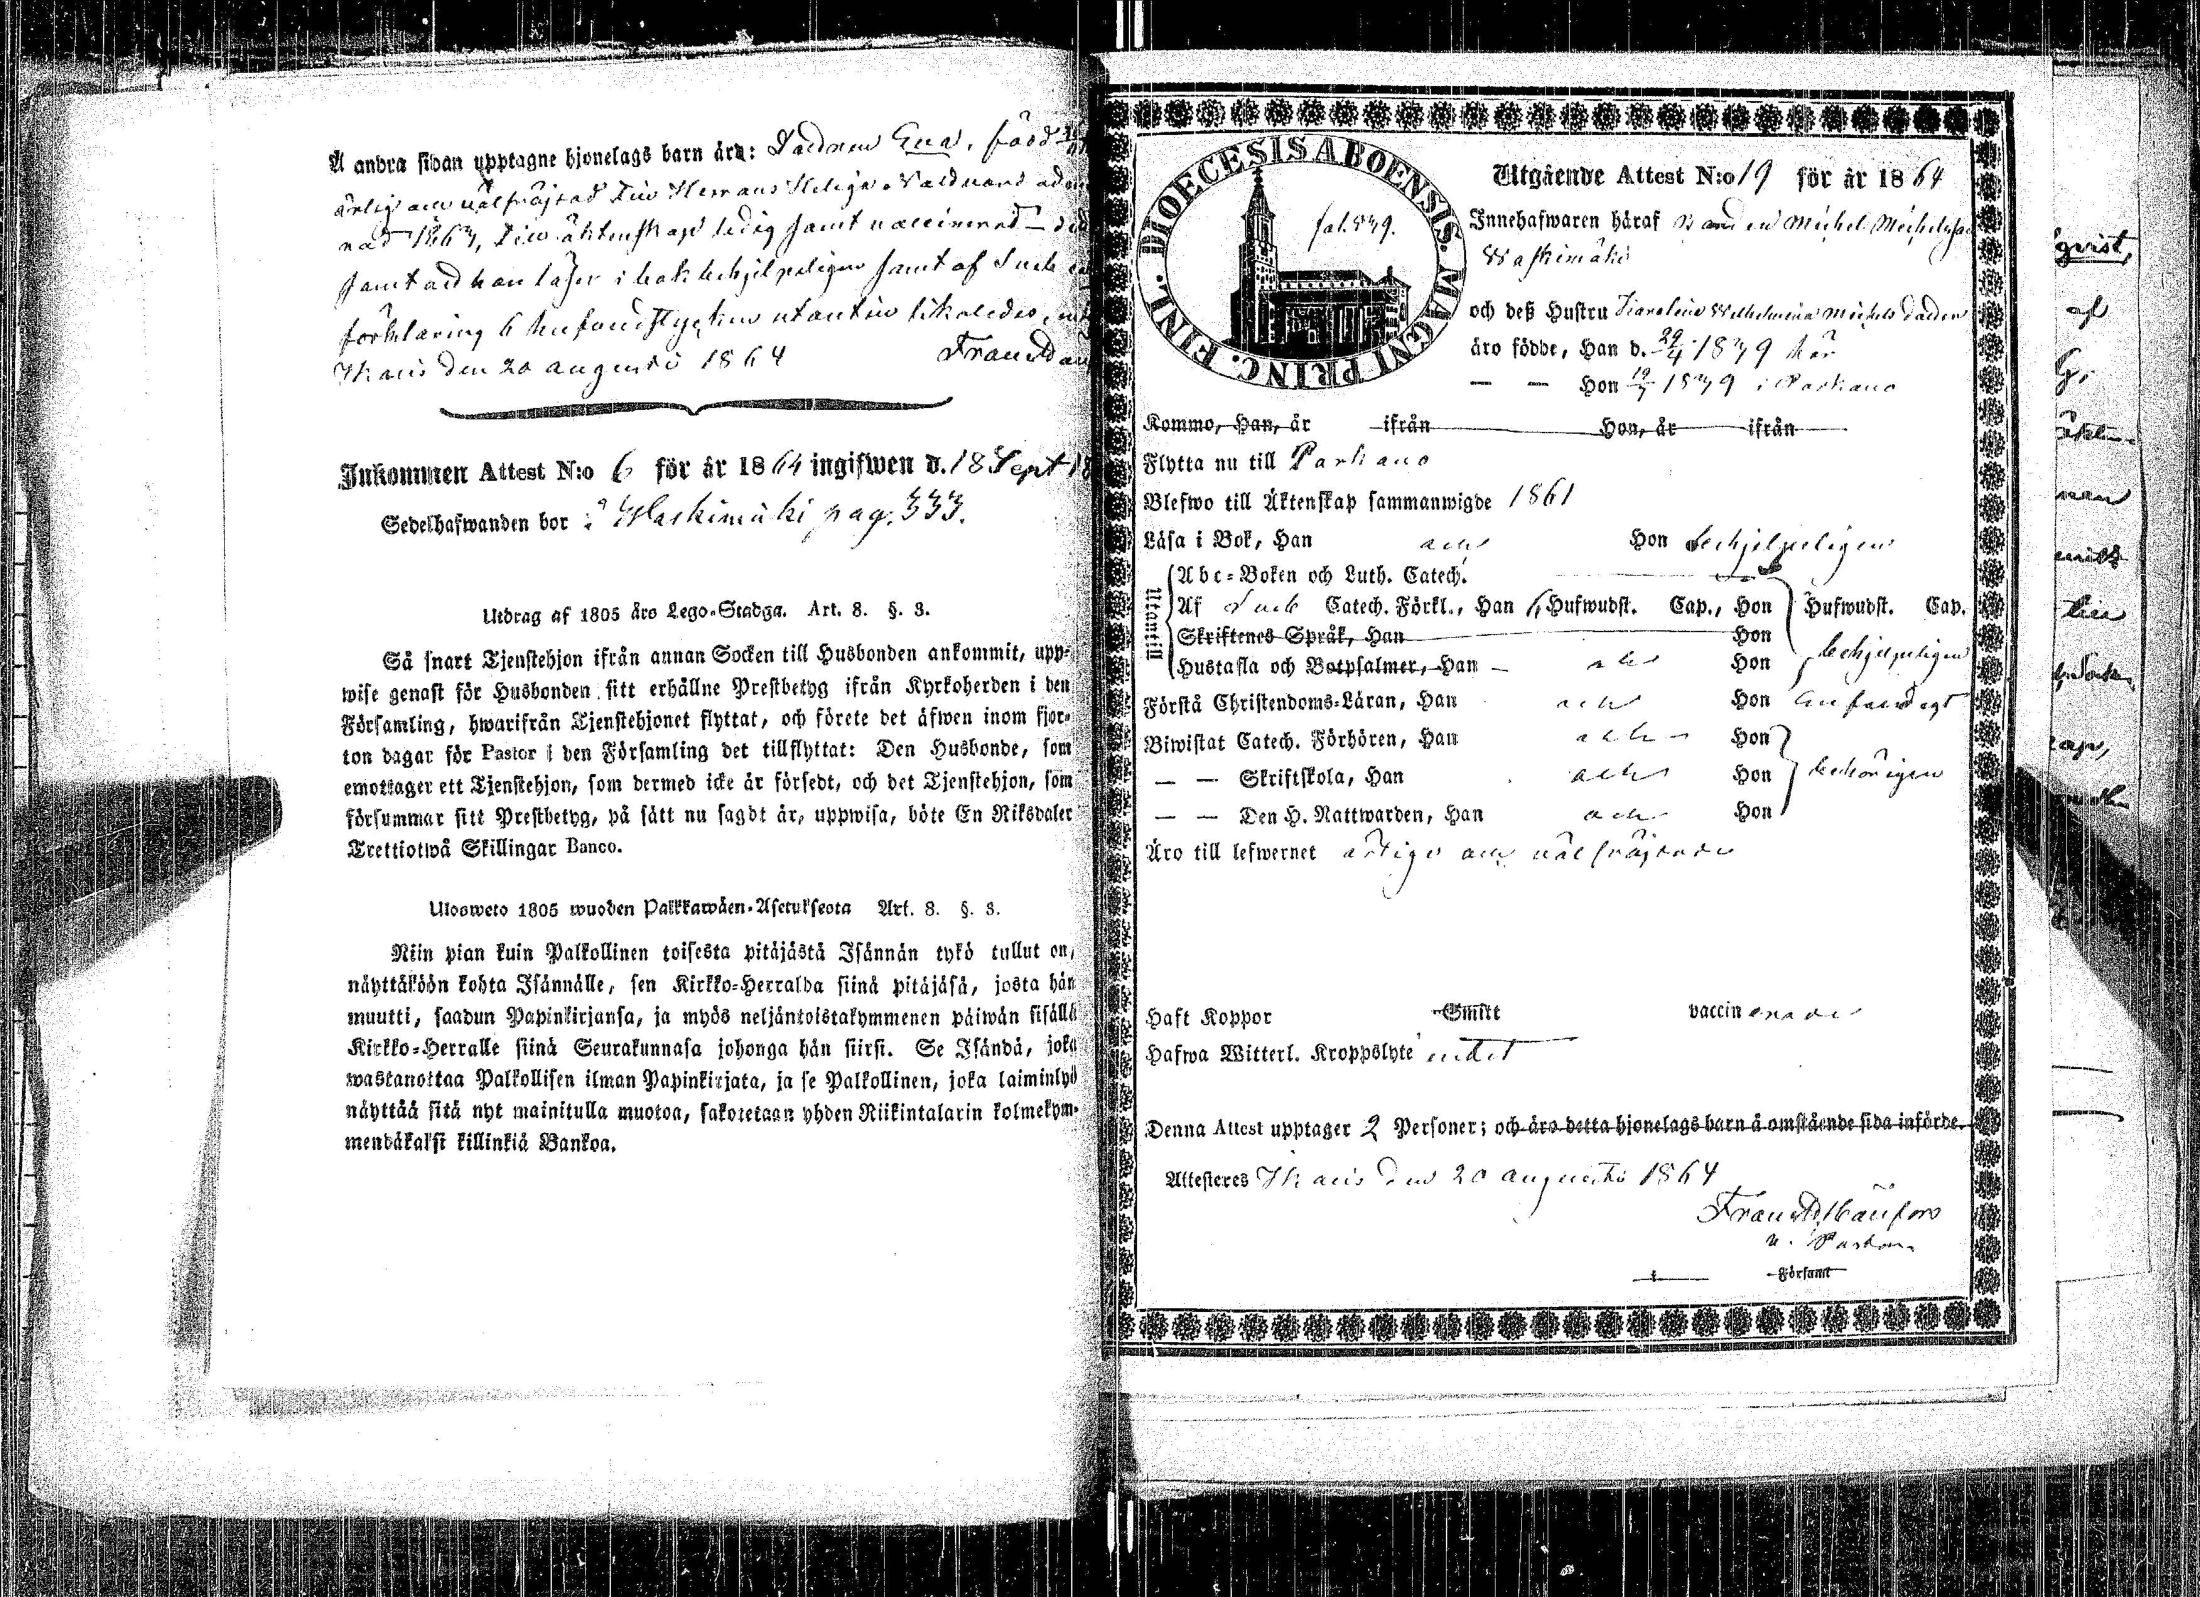 Å andra sidan upptagne hjonelags barn äro: Sadren Eva, född
ärlig och välfrejdad, Herrans Heliga Nattvard
1863, till äktenskap ledig samt vaccinerad
samt att hon läser i bok behjelpeligen samt af Sueb
förklaring 6 hufvudstycken utantill likaledes,
Ikalis den 20 augusti 1864 Frans
Inkommen Attest N:o 6 för år 1864 ingifwen d. 18 Sept 18
Sedelhafwanden bor i Waskimäki pag. 333.
Utdrag af 1805 års Lego-Stadga. Art. 8. §. 3.
Så snart Tjenstehjon ifrån annan Socken till Husbonden ankommit, upp-
wise genast för Husbonden sitt erhållne Prestbetyg ifrån Kyrkoherden i den
Församling, hwarifrån Tjenstehjonet flyttat, och förete det äfwen inom fjor-
ton dagar för Pastor i den Församling det tillflyttat: Den Husbonde, som
emottager ett Tjenstehjon, som dermed icke är försedt, och det Tjenstehjon, som
försummar sitt Prestbetyg, på sätt nu sagdt är, uppwisa, böte En Riksdaler
Trettiotwå Skillingar Banco.
Ulosweto 1805 wuoden Palkkawäen-Asetuksesta Art. 8. §. 3.
Niin pian kuin Palkollinen toisesta pitäjästä Isännän tykö tullut on,
näyttäköön kohta Isännälle, sen Kirkko-Herralda siinä pitäjäsä, josta hän
muutti, saadun Papinkirjansa, ja myös neljäntoistakymmenen päiwän sisällä
Kirkko-Herralle siinä Seurakunnasa johonga hän siirsi. Se Isändä, joka
wastanottaa Palkollisen ilman Papinkirjata, ja se Palkollinen, joka laiminlyö
näyttää sitä nyt mainitulla muotoa, sakotetaan yhden Riikintalarin kolmekym-
mendäkaksi killinkiä Bankoa.
DIOECESIS ABOENSIS. MAGNI PRINC. FINL.
fol. 839.
Utgående Attest N:o 19 för år 1864
Innehafwaren häraf Bonden Michel Michelsson
Waskimäki
och deß Hustru Karolina Wilhelmina Michelsdotter
äro födde, Han d. 29/4 1839 här
— — Hon 1839 i Parkano
Kommo, Han, år ifrån Hon, år ifrån
Flytta nu till Parkano
Blefwo till Äktenskap sammanwigde 1861
Läsa i Bok, Han och Hon behjelpeligen
Utantill
Abc-Boken och Luth. Catech.
Af Sueb Catech. Förkl., Han 6 Hufwudst. Cap., Hon Hufwudst. Cap.
Skriftenes Språk, Han Hon
Hustafla och Botpsalmer, Han — och Hon behjelpeligen
Förstå Christendoms-Läran, Han och Hon enfaldigt
Biwistat Catech. Förhören, Han och Hon
— — Skriftskola, Han och Hon behörigen
— — Den H. Nattwarden, Han och Hon
Äro till lefwernet ärlige och välfrejdade
Haft Koppor Smitt vaccinerade
Hafwa Witterl. Kroppslyte intet
Denna Attest upptager 2 Personer; och äro detta hjonelags barn å omstående sida införde.
Attesteres Ikalis den 20 augusti 1864
v. Pastor
i Församl
qvist,
af